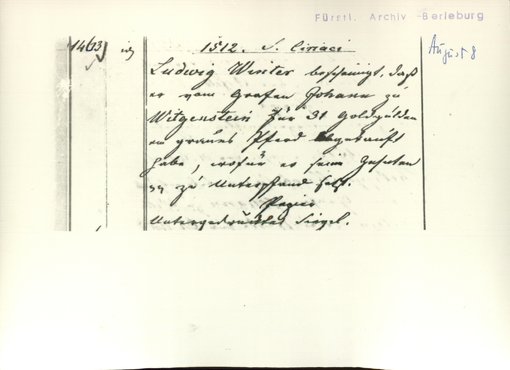 Fürstl. Archiv Berleburg
1463
1512. S. Ciriaci
August 8
Ludwig Winter bescheinigt, daß
er vom Grafen Johann zu
Witgenstein für 31 Goldgulden
ein graues Pferd abgekauft
habe, wofür er sein
zu Unterpfand setzt.
Papier
Untergedrücktes Siegel.